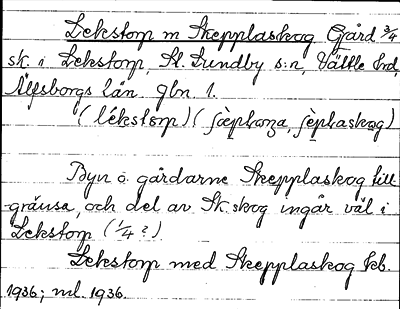 Lekstorp m Skepplaskog Gård 3/4
sk. i Lekstorp, St. Lundby s:n, Vättle hd,
Älfsborgs län. gbn 1.
(lékstorp)(
Byn o. gårdarne Skepplaskog till-
gränsa, och del av Sk.skog ingår väl i
Lekstorp (1/4?)
Lekstorp med Skepplaskog kb.
1936; ml. 1936.